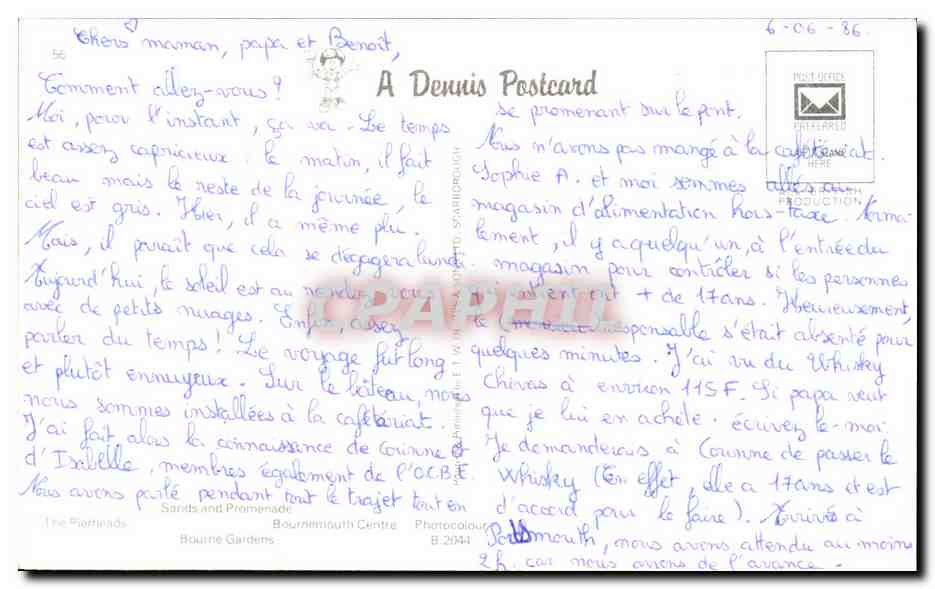 6-06-86.
Chers maman, papa et Benoît,
56
A Dennis Postcard
POST OFFICE
PREFERRED
HERE
PRODUCTION
Comment allez-vous?
Moi, pour l'instant, ça va. Le temps
est assez capricieux. le matin, il fait
beau mais le reste de la journée, le
ciel est gris. Hier, il a même plu.
Mais, il paraît que cela se dégagera lundi.
Aujourd'hui, le soleil est au rendez-vous
avec de petits nuages. Enfin assez
parler du temps! Le voyage fut long
et plutôt ennuyeux. Sur le bateau, nous
nous sommes installées à la cafétériat.
J'ai fait alors la connaissance de Corinne et
d'Isabelle, membres également de l'O.C.B.E.
Nous avons parlé pendant tout le trajet tout en
The Pierheads
Sands and Promenade
Bourne Gardens
Bournemouth Centre
Photocolour
B.2044
SCARBOROUGH
CPAPHIL
se promenant sur le pont.
Nous n'avons pas mangé à la cafétériat.
Sophie A. et moi sommes allés au
magasin d'alimentation hors-taxe. Norma-
lement, il y a quelqu'un, à l'entrée du
magasin pour contrôler si les personnes
qui entrent ont + de 17 ans. Heureusement,
le responsable s'était absenté pour
quelques minutes. J'ai vu du Whisky
Chivas à environ 115F. Si papa veut
que je lui en achète. écrivez le-moi.
Je demanderais à Corinne de passer le
Whisky (En effet, elle a 17 ans et est
d'accord pour le faire). Arrivés à
Portsmouth, nous avons attendu au moins
2h. car nous avons de l'avance.